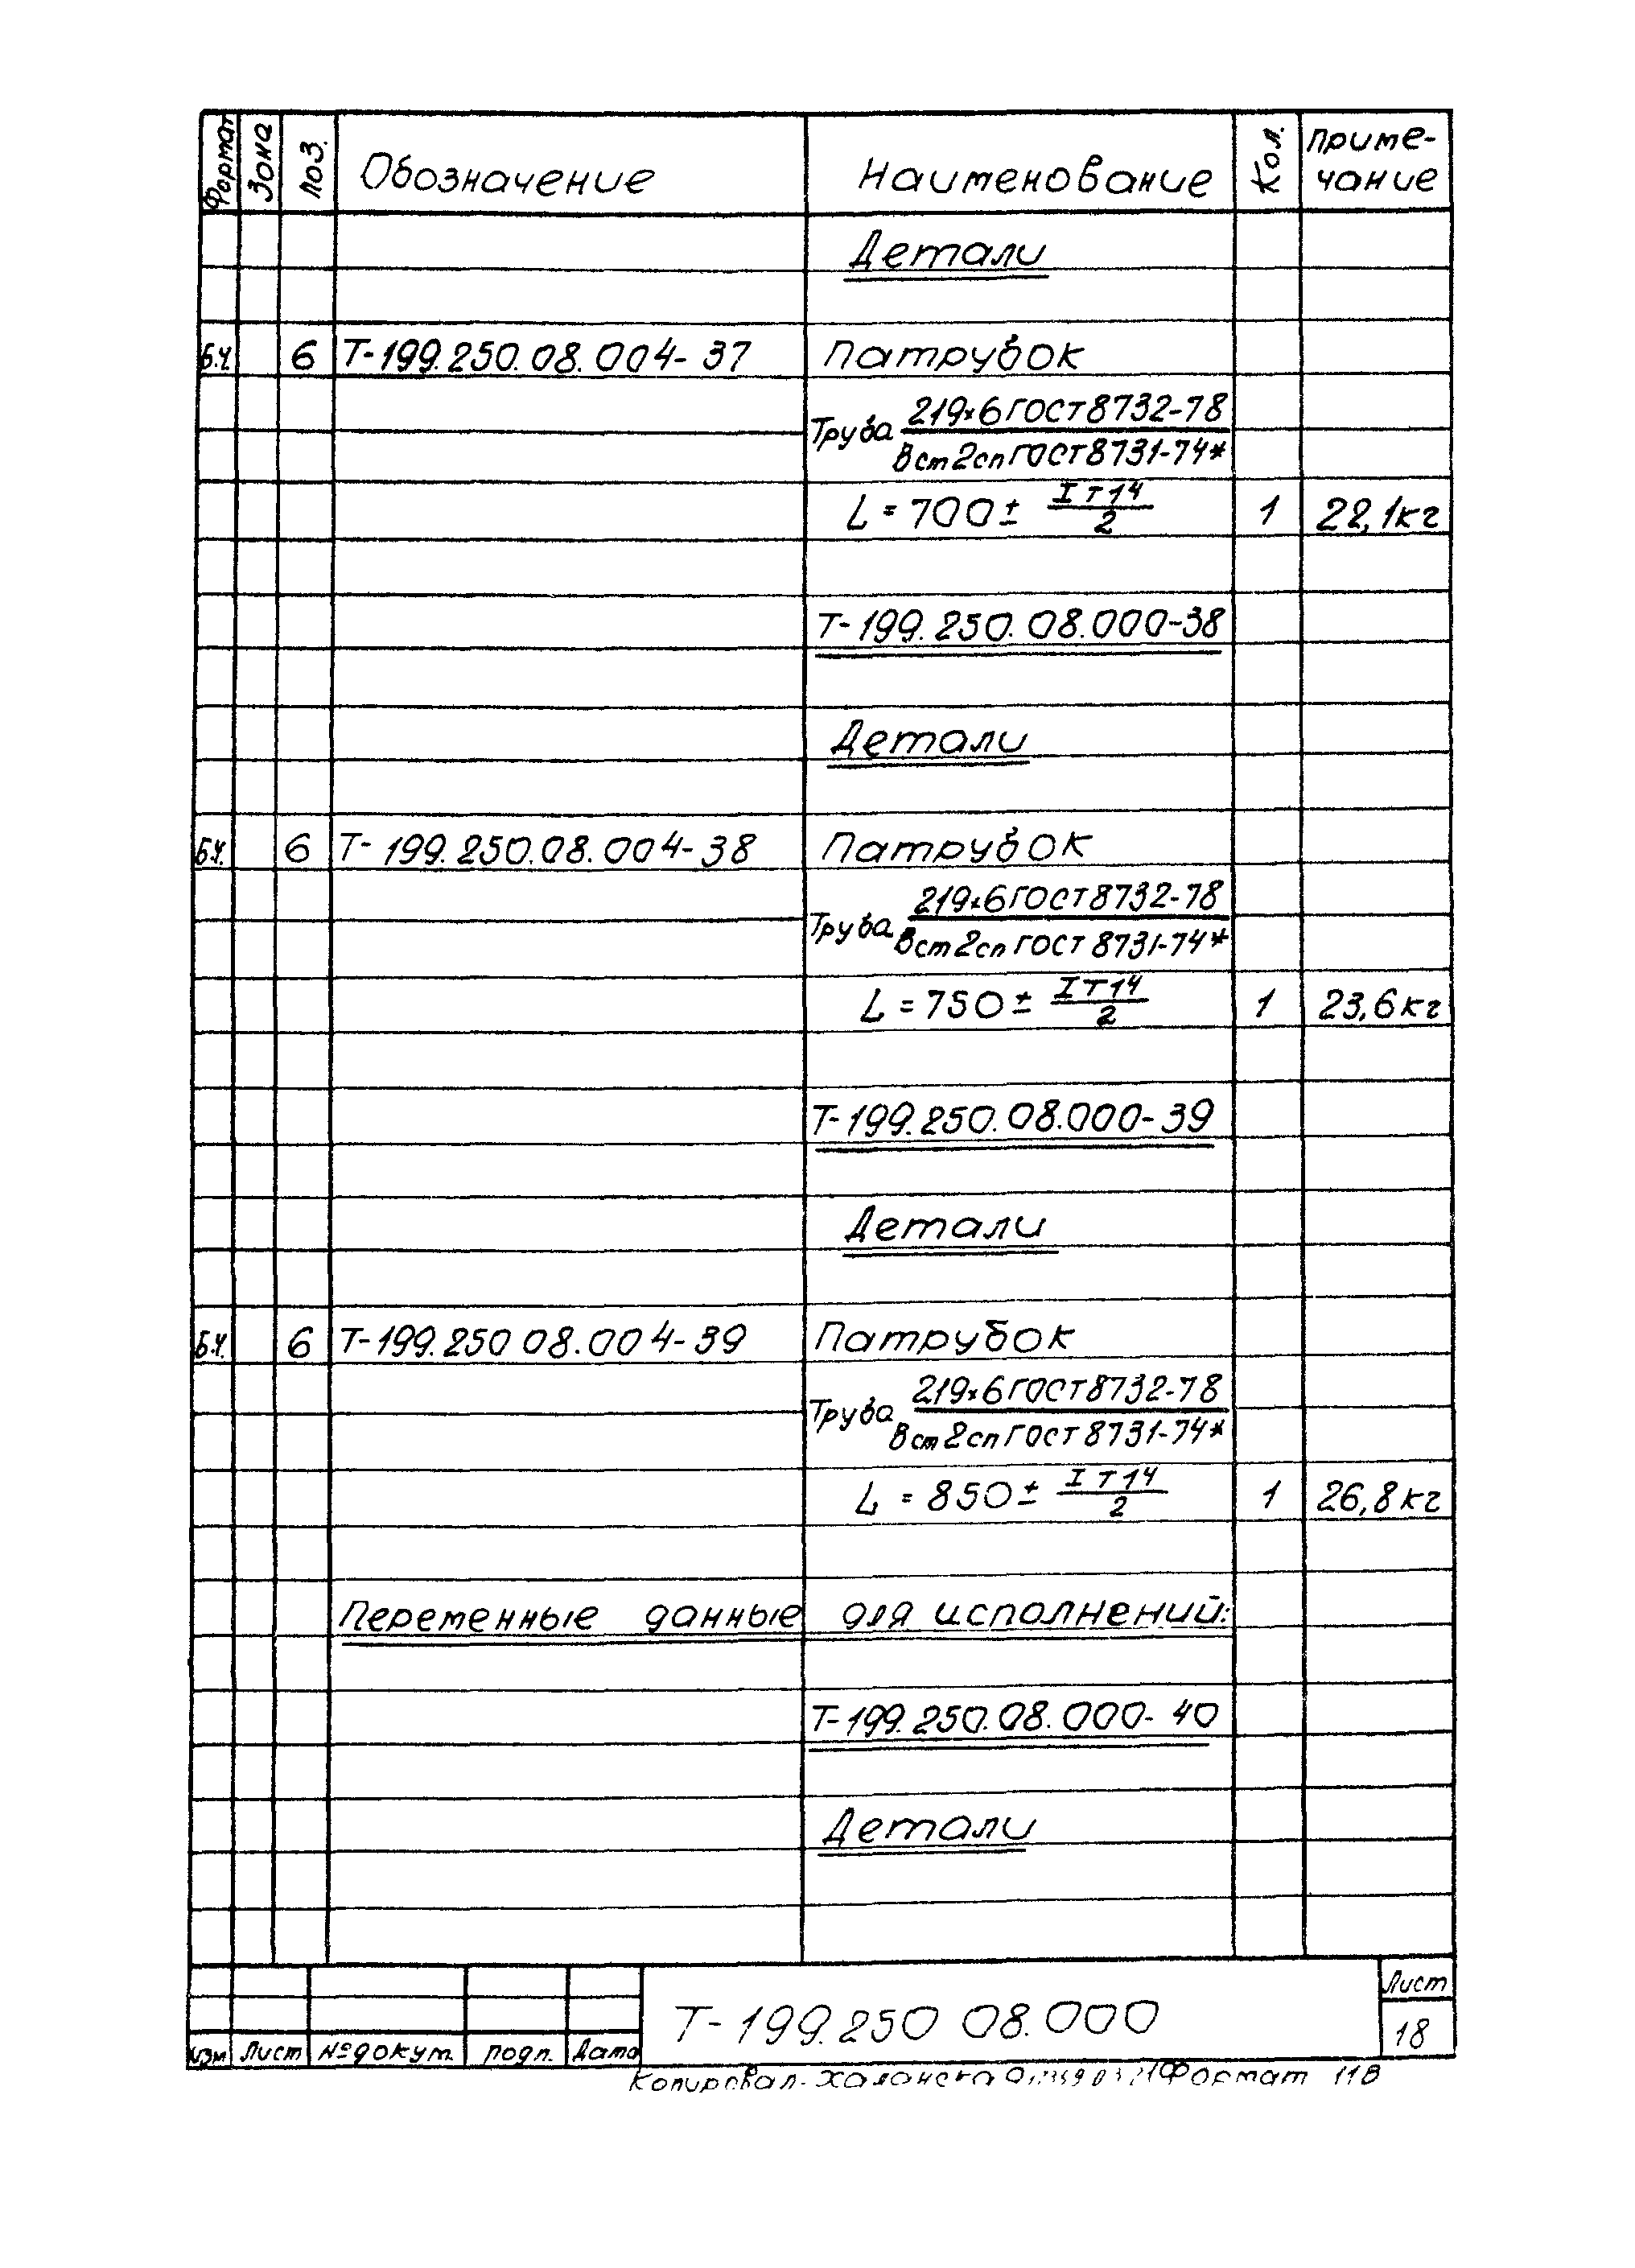 Формат Зона Поз. Обозначение Наименование Кол. Приме-
чание
Детали
Б.Ч. 6 Т-199.250.08.004-37 Патрубок
Труба 219×6 ГОСТ 8732-78
Вст2сп ГОСТ 8731-74*
L = 700 ± IT14/2 1 22,1кг
Т-199.250.08.000-38
Детали
Б.Ч. 6 Т-199.250.08.004-38 Патрубок
Труба 219×6 ГОСТ 8732-78
Вст2сп ГОСТ 8731-74*
L = 750 ± IT14/2 1 23,6кг
Т-199.250.08.000-39
Детали
Б.Ч. 6 Т-199.250 08.004-39 Патрубок
Труба 219×6 ГОСТ 8732-78
Вст2сп ГОСТ 8731-74*
L = 850 ± IT14/2 1 26,8кг
Переменные данные для исполнений:
Т-199.250.08.000-40
Детали
Т-199.250 08.000
Лист
18
Изм Лист №докум. подп. Дата
Копировал- Формат 11В